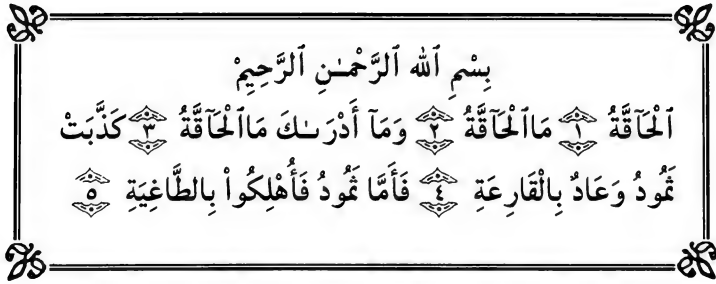 بِسْمِ ٱللَّه ٱلرَّحْمَـٰنِ ٱلرَّحِيمِْ
ٱلْحَآقَّةُ ١ مَاٱلْحَآقَّةُ ٢ وَمَآ أَدْرَىـٰكَ مَاٱلْحَآقَّةُ ٣ كَذَّبَتْ
ثَمُودُ وَعَادٌ بِالْقَارِعَةِ ٤ فَأَمَّا ثَمُودُ فَأُهْلِكُواْ بِالطَّاغِيَةِ ٥